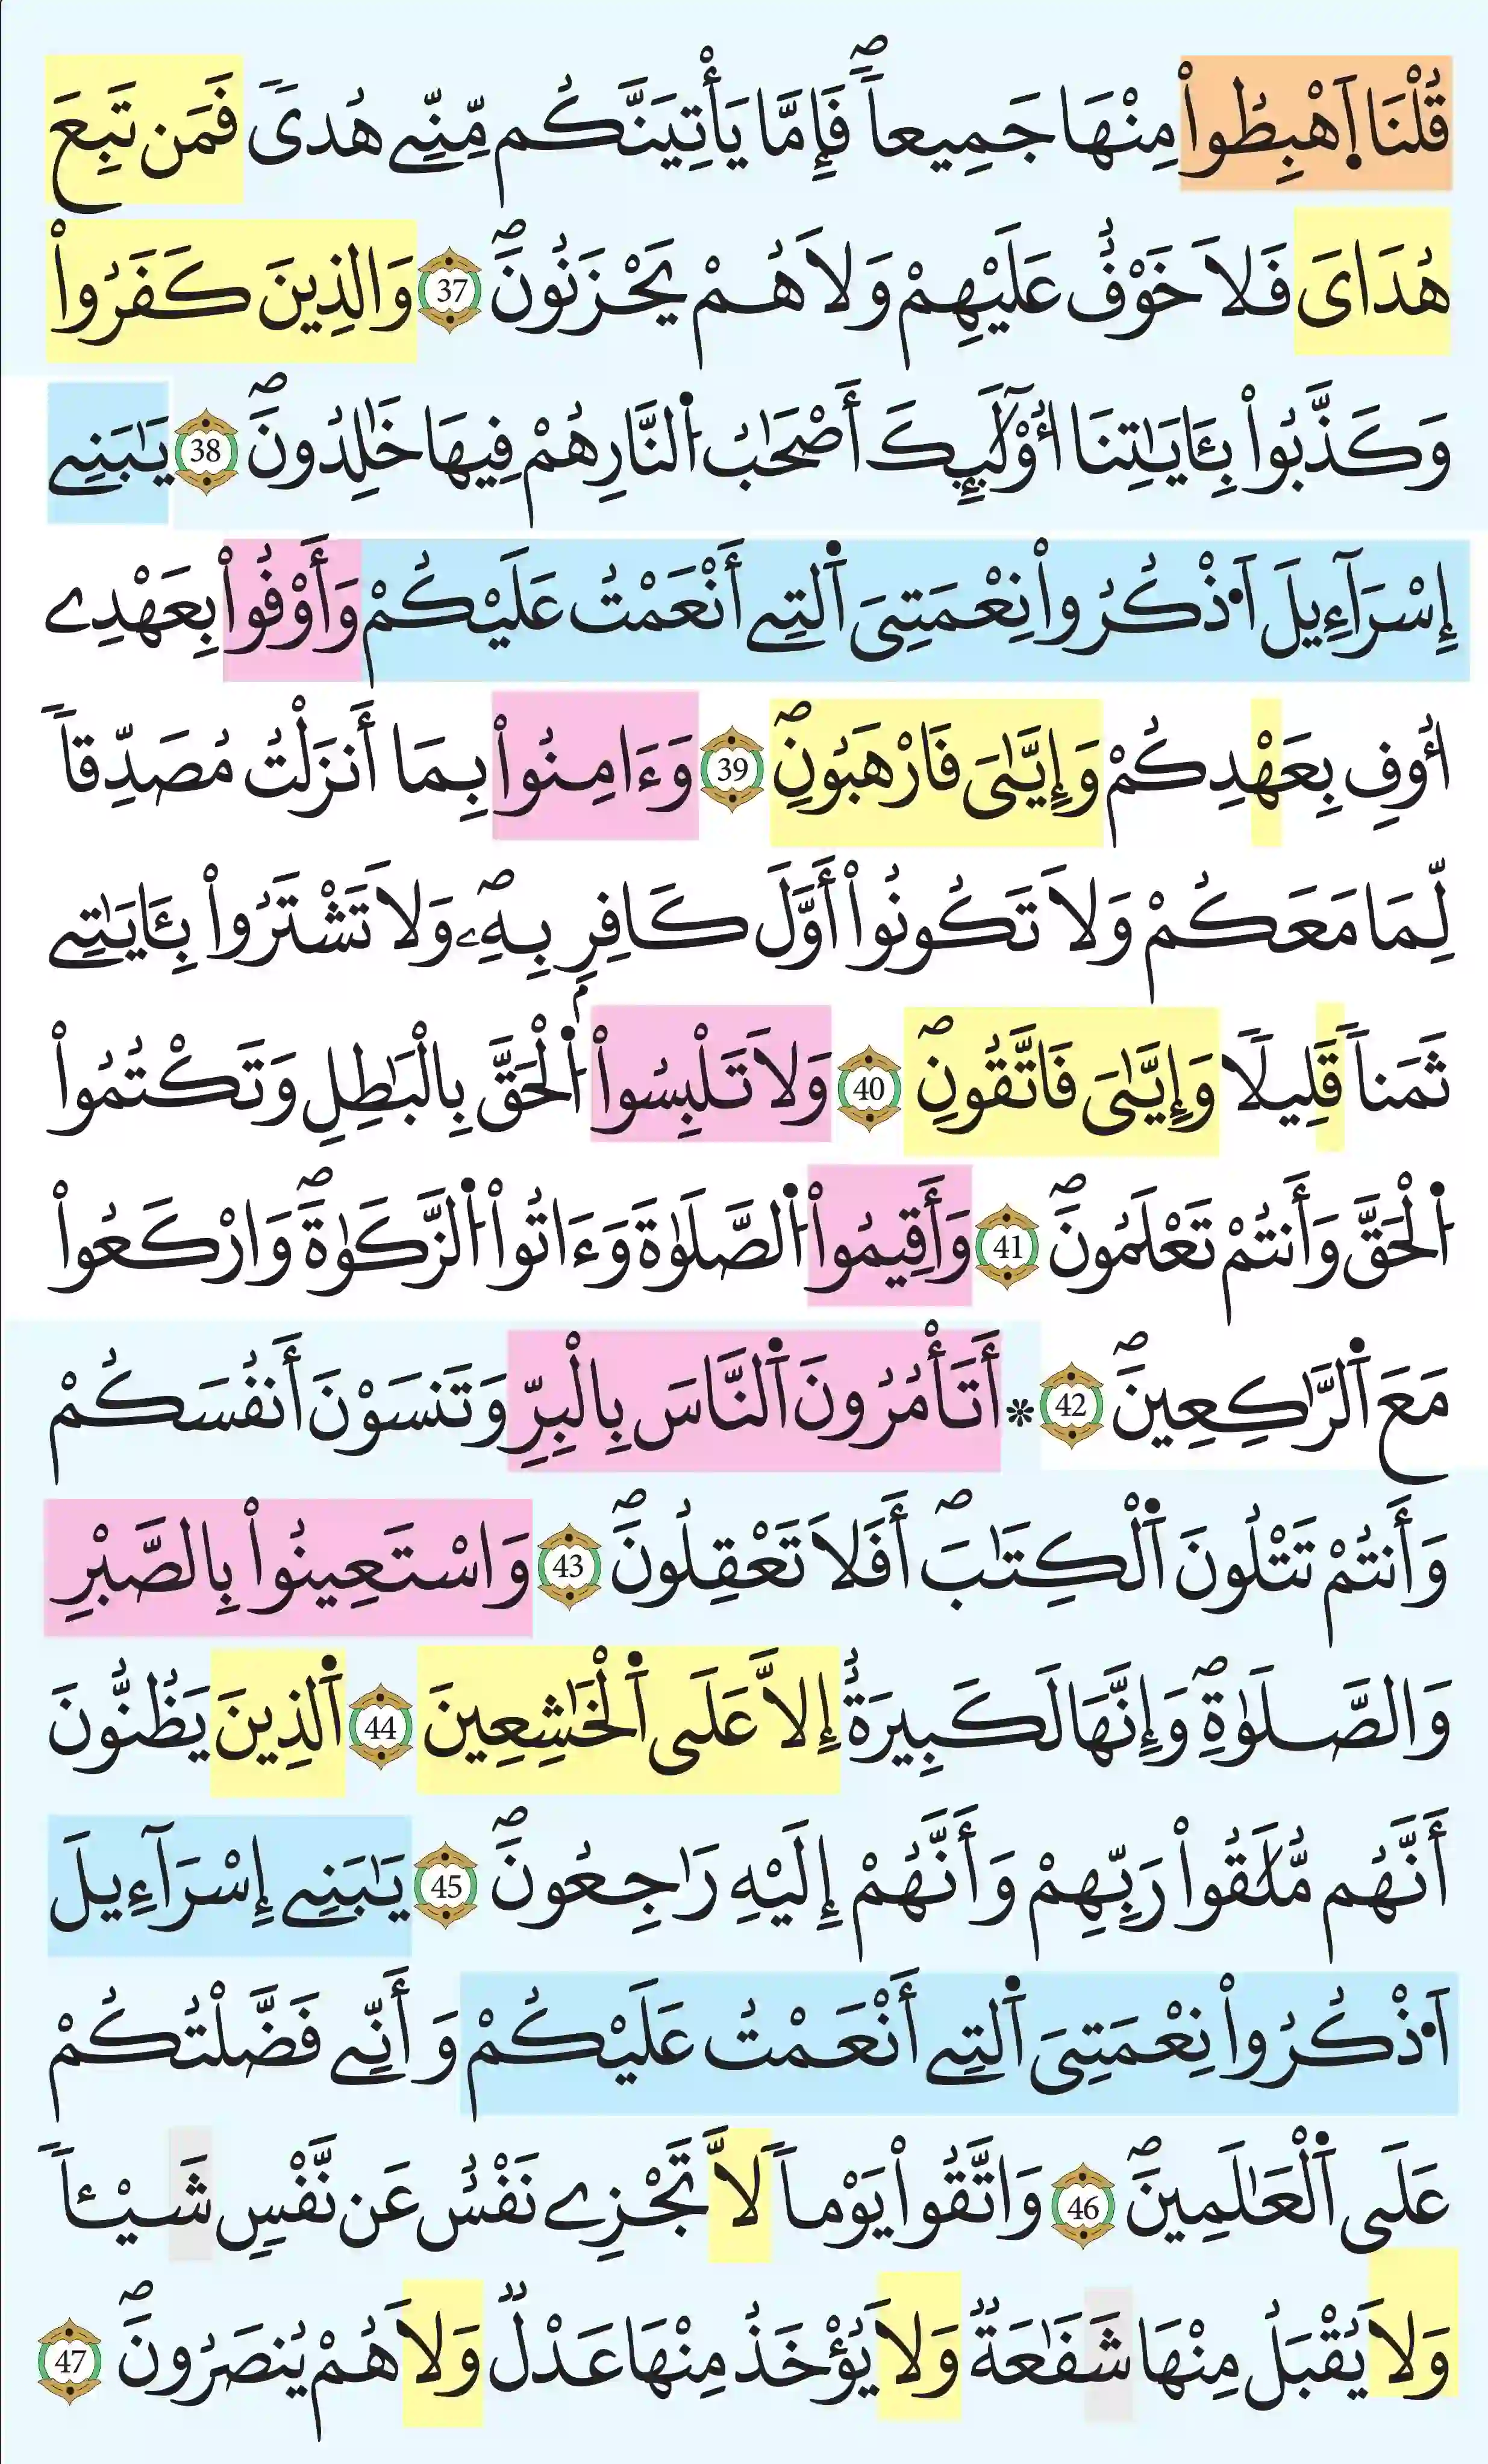 قُلْنَا اَ۪هْبِطُواْ مِنْهَا جَمِيعاٗۖ فَإِمَّا يَأْتِيَنَّكُم مِّنِّے هُديٗ فَمَن تَبِعَ
هُدَايَ فَلَا خَوْفٌ عَلَيْهِمْ وَلَا هُمْ يَحْزَنُونَۖ 37 وَالذِينَ كَفَرُواْ
وَكَذَّبُواْ بِـَٔايَٰتِنَا أُوْلَٰٓئِكَ أَصْحَٰبُ اُ۬لنَّارِ هُمْ فِيهَا خَٰلِدُونَۖ 38 يَٰبَنِے
إِسْرَآءِيلَ اَ۟ذْكُرُواْ نِعْمَتِيَ اَ۬لتِے أَنْعَمْتُ عَلَيْكُمْ وَأَوْفُواْ بِعَهْدِے
أُوفِ بِعَهْدِكُمْ وَإِيَّٰيَ فَارْهَبُونِۖ 39 وَءَامِنُواْ بِمَا أَنزَلْتُ مُصَدِّقاٗ
لِّمَا مَعَكُمْ وَلَا تَكُونُواْ أَوَّلَ كَافِرِۢ بِهِۦۖ وَلَا تَشْتَرُواْ بِـَٔايَٰتِے
ثَمَناٗ قَلِيلٗا وَإِيَّٰيَ فَاتَّقُونِۖ 40 وَلَا تَلْبِسُواْ اُ۬لْحَقَّ بِالْبَٰطِلِ وَتَكْتُمُواْ
اُ۬لْحَقَّ وَأَنتُمْ تَعْلَمُونَۖ 41 وَأَقِيمُواْ اُ۬لصَّلَوٰةَ وَءَاتُواْ اُ۬لزَّكَوٰةَۖ وَارْكَعُواْ
مَعَ اَ۬لرَّٰكِعِينَۖ 42 * أَتَأْمُرُونَ اَ۬لنَّاسَ بِالْبِرِّ وَتَنسَوْنَ أَنفُسَكُمْ
وَأَنتُمْ تَتْلُونَ اَ۬لْكِتَٰبَۖ أَفَلَا تَعْقِلُونَۖ 43 وَاسْتَعِينُواْ بِالصَّبْرِ
وَالصَّلَوٰةِۖ وَإِنَّهَا لَكَبِيرَةٌ إِلَّا عَلَي اَ۬لْخَٰشِعِينَ 44 اَ۬لذِينَ يَظُنُّونَ
أَنَّهُم مُّلَٰقُواْ رَبِّهِمْ وَأَنَّهُمْ إِلَيْهِ رَٰجِعُونَۖ 45 يَٰبَنِے إِسْرَآءِيلَ
اَ۟ذْكُرُواْ نِعْمَتِيَ اَ۬لتِے أَنْعَمْتُ عَلَيْكُمْ وَأَنِّے فَضَّلْتُكُمْ
عَلَي اَ۬لْعَٰلَمِينَۖ 46 وَاتَّقُواْ يَوْماٗ لَّا تَجْزِے نَفْسٌ عَن نَّفْسٖ شَيْـٔاٗ
وَلَا يُقْبَلُ مِنْهَا شَفَٰعَةٞ وَلَا يُؤْخَذُ مِنْهَا عَدْلٞ وَلَا هُمْ يُنصَرُونَۖ 47